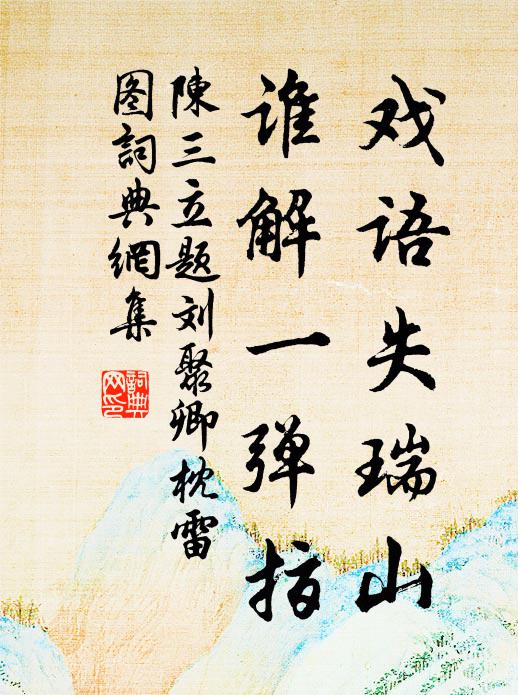 戏语失瑞山
谁解一弹指
陳三立题刘聚卿枕雷
图詞典網集
詞典
网印